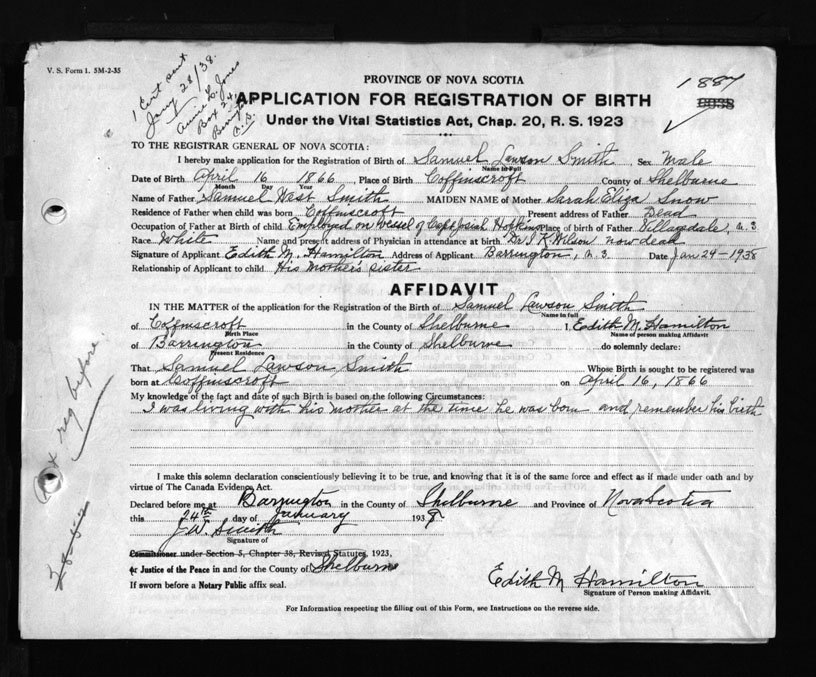 V. S. Form 1. 5M-2-35
1 Cert sent
Jany 28/38.
Annie L. Jones
Box 24
PROVINCE OF NOVA SCOTIA
1887
APPLICATION FOR REGISTRATION OF BIRTH
Under the Vital Statistics Act, Chap. 20, R. S. 1923
TO THE REGISTRAR GENERAL OF NOVA SCOTIA:
I hereby make application for the Registration of Birth of Samuel Lawson Smith, Sex Male
Name in Full
Date of Birth April 16 1866 Place of Birth Coffinscroft County of Shelburne
Month Day Year
Name of Father Samuel West Smith MAIDEN NAME of Mother Sarah Eliza Snow
Residence of Father when child was born Coffinscroft Present address of Father Dead
Occupation of Father at Birth of child Employed on vessel of Capt Josiah Hopkins Place of Birth of Father Villagedale, N.S
Race White Name and present address of Physician in attendance at birth Dr I K Wilson now dead
Signature of Applicant Edith M. Hamilton Address of Applicant Barrington, N.S Date Jan 24-1938
Relationship of Applicant to child His Mother's sister
AFFIDAVIT
IN THE MATTER of the application for the Registration of the Birth of Samuel Lawson Smith
Name in full
of Coffinscroft in the County of Shelburne I, Edith M. Hamilton
Birth Place Name of person making Affidavit
of Barrington in the County of Shelburne do solemnly declare:
Present Residence
That Samuel Lawson Smith Whose Birth is sought to be registered was
born at Coffinscroft on April 16, 1866
My knowledge of the fact and date of such Birth is based on the following Circumstances:
I was living with his mother at the time he was born and remember his birth
Not reg before
I make this solemn declaration conscientiously believing it to be true, and knowing that it is of the same force and effect as if made under oath and by
virtue of The Canada Evidence Act.
Declared before me at Barrington in the County of Shelburne and Province of Nova Scotia
this 24th day of January 1938
J.W. Smith
Signature of
Commissioner under Section 5, Chapter 38, Revised Statutes, 1923,
or Justice of the Peace in and for the County of Shelburne
If sworn before a Notary Public affix seal.
Edith M Hamilton
Signature of Person making Affidavit.
For Information respecting the filling out of this Form, see Instructions on the reverse side.